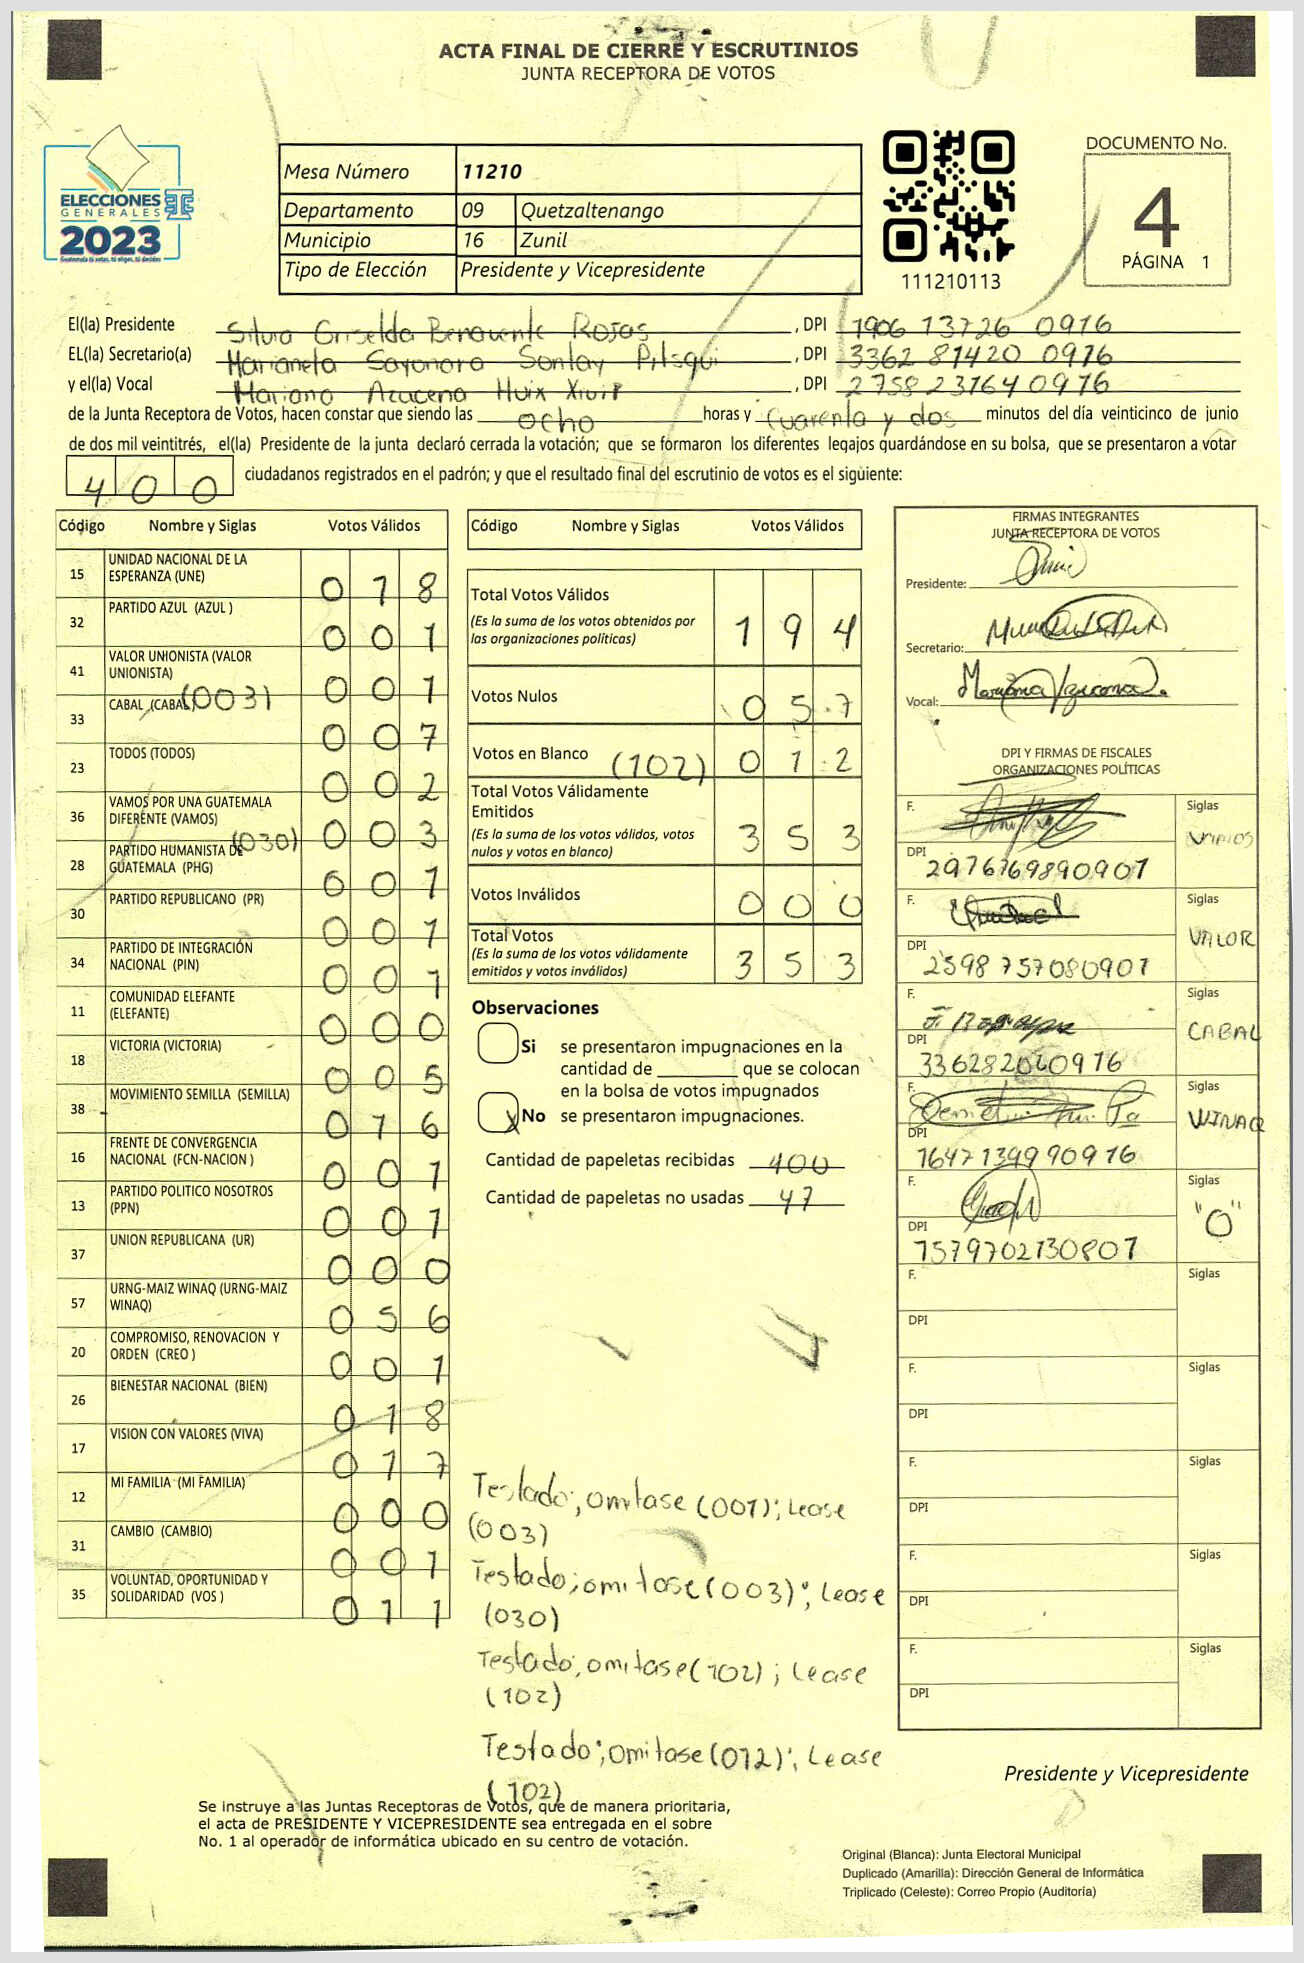 ACTA FINAL DE CIERRE Y ESCRUTINIOS
JUNTA RECEPTORA DE VOTOS
ELECCIONES
GENERALES
2023
Mesa Número 11210
Departamento 09 Quetzaltenango
Municipio 16 Zunil
Tipo de Elección Presidente y Vicepresidente
111210113
DOCUMENTO No.
4
PÁGINA 1
El(la) Presidente Silvia Griselda Benavente Rojas , DPI 1906 13726 0916
EL(la) Secretario(a) Marianela Sayonara Sontay Pitsqui , DPI 3362 81420 0916
y el(la) Vocal Mariana Azucena Huix Xivir , DPI 2758 23164 0916
de la Junta Receptora de Votos, hacen constar que siendo las ocho horas y Cuarenta y dos minutos del día veinticinco de junio
de dos mil veintitrés, el(la) Presidente de la junta declaró cerrada la votación; que se formaron los diferentes legajos guardándose en su bolsa, que se presentaron a votar
400 ciudadanos registrados en el padrón; y que el resultado final del escrutinio de votos es el siguiente:
Código Nombre y Siglas Votos Válidos
15 UNIDAD NACIONAL DE LA ESPERANZA (UNE) 018
32 PARTIDO AZUL (AZUL ) 001
41 VALOR UNIONISTA (VALOR UNIONISTA) 001
(003)
33 CABAL (CABAL) 007
23 TODOS (TODOS) 002
36 VAMOS POR UNA GUATEMALA DIFERENTE (VAMOS) 003
(030)
28 PARTIDO HUMANISTA DE GUATEMALA (PHG) 001
30 PARTIDO REPUBLICANO (PR) 001
34 PARTIDO DE INTEGRACIÓN NACIONAL (PIN) 001
11 COMUNIDAD ELEFANTE (ELEFANTE) 000
18 VICTORIA (VICTORIA) 005
38 MOVIMIENTO SEMILLA (SEMILLA) 016
16 FRENTE DE CONVERGENCIA NACIONAL (FCN-NACION ) 001
13 PARTIDO POLITICO NOSOTROS (PPN) 001
37 UNION REPUBLICANA (UR) 000
57 URNG-MAIZ WINAQ (URNG-MAIZ WINAQ) 056
20 COMPROMISO, RENOVACION Y ORDEN (CREO ) 001
26 BIENESTAR NACIONAL (BIEN) 018
17 VISION CON VALORES (VIVA) 017
12 MI FAMILIA (MI FAMILIA) 000
31 CAMBIO (CAMBIO) 001
35 VOLUNTAD, OPORTUNIDAD Y SOLIDARIDAD (VOS ) 011
Código Nombre y Siglas Votos Válidos
Total Votos Válidos 194
(Es la suma de los votos obtenidos por
las organizaciones politicas)
Votos Nulos 057
Votos en Blanco (102) 012
Total Votos Válidamente
Emitidos 353
(Es la suma de los votos válidos, votos
nulos y votos en blanco)
Votos Inválidos 000
Total Votos 353
(Es la suma de los votos válidamente
emitidos y votos inválidos)
Observaciones
Si se presentaron impugnaciones en la
cantidad de ________ que se colocan
en la bolsa de votos impugnados
X No se presentaron impugnaciones.
Cantidad de papeletas recibidas 400
Cantidad de papeletas no usadas 47
Testado; omitase (001); Lease
(003)
Testado; omitase (003); Lease
(030)
Testado; omitase (102); Lease
(102)
Testado; omitase (012); Lease
(102)
FIRMAS INTEGRANTES
JUNTA RECEPTORA DE VOTOS
Presidente:
Secretario:
Vocal:
DPI Y FIRMAS DE FISCALES
ORGANIZACIONES POLÍTICAS
F. Siglas
VAMOS
DPI 2976769890901
F. Siglas
VALOR
DPI 2598 757080901
F. Siglas
CABAL
DPI 3362820400916
F. Siglas
WINAQ
DPI 1647139990916
F. Siglas
"O"
DPI 1579702130807
F. Siglas
DPI
F. Siglas
DPI
F. Siglas
DPI
F. Siglas
DPI
F. Siglas
DPI
Presidente y Vicepresidente
Se instruye a las Juntas Receptoras de Votos, que de manera prioritaria,
el acta de PRESIDENTE Y VICEPRESIDENTE sea entregada en el sobre
No. 1 al operador de informática ubicado en su centro de votación.
Original (Blanca): Junta Electoral Municipal
Duplicado (Amarilla): Dirección General de Informática
Triplicado (Celeste): Correo Propio (Auditoría)